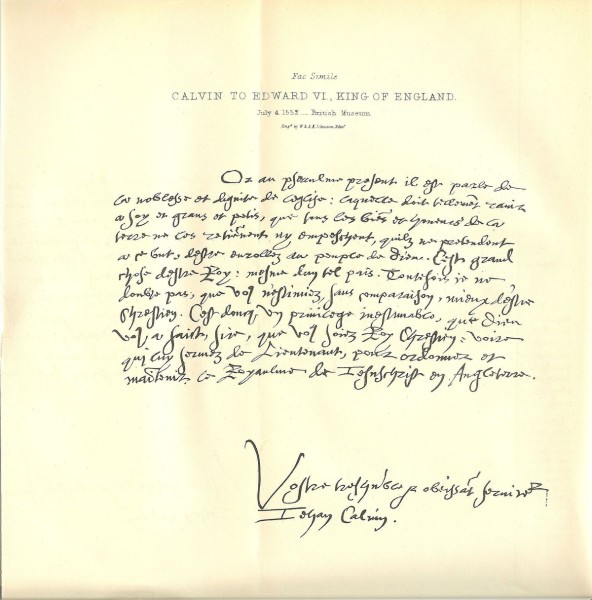 Fac Simile
CALVIN TO EDWARD VI., KING OF ENGLAND.
July 4 1552 _ British Museum.
Or au pseaulme present il est parle de
la noblesse et dignite de leglise: laquelle doit tellemēt ravir
a soy et grans et petis, que tous les biēs et honeurs de la
terre ne les retienēnt ny empeschent, quilz ne pretendent
a ce but, destre enrollez au peuple de dieu. Cest grand
chose destre Roy: mesme dung tel pais. Toutesfois je ne
doubte pas, que vous nestimiez sans comparaison, mieux destre
Chrestien. Cest doncq un privilege inestimable, que Dieu
vous a faict, sire, que vous soiez Roy Chrestien: voire
qui luy servez de Lieutenant, pour ordonner et
maītenir le Royaulme de Jesuschrist en Angleterre.
Vostre treshūble et obeissāt serviteur
Jehan Calvin.